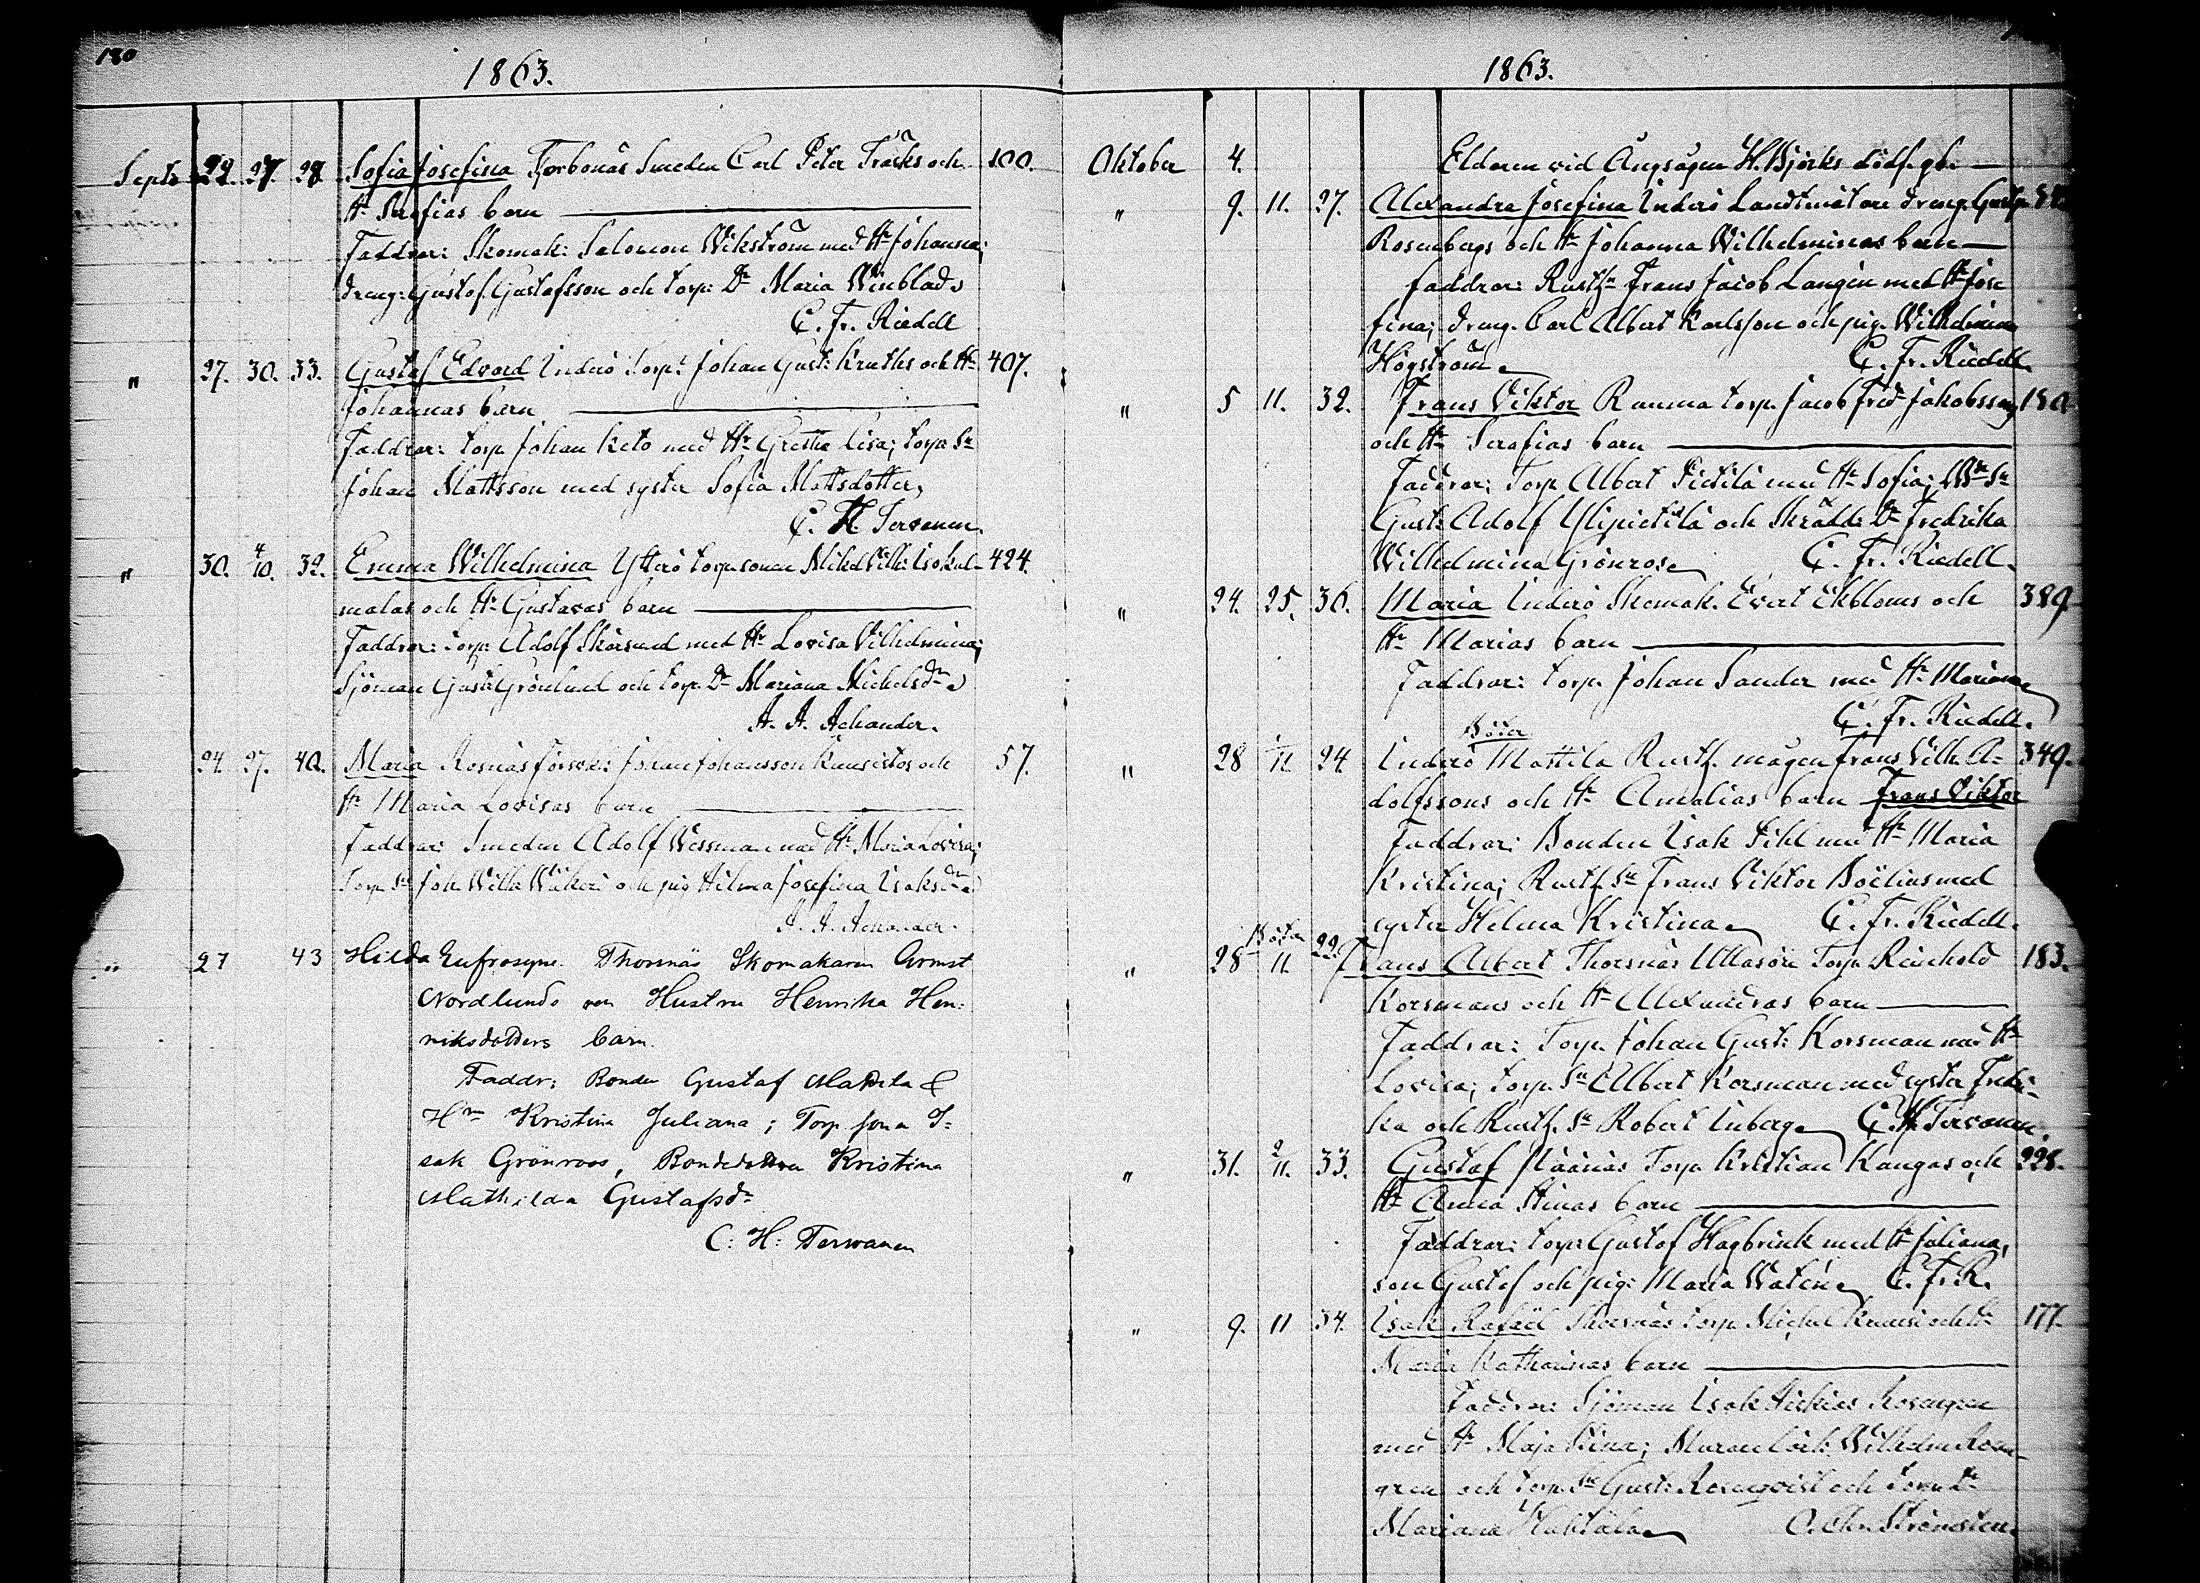 180
1863.
Septr 22. 27. 28. Sofia Josefina Torbonäs Smeden Carl Peter Träsks och 100.
Hr Serafias barn
Faddrar: Skomak: Salomon Wikström med Hr Johanna;
dreng: Gustof Gustafsson och torp: Dr Maria Winblad
C. Fr. Riedell
" 27. 30. 33. Gustaf Edvard Inderö Torp: Johan Gust: Kruths och Hr 407.
Johannas barn
Faddrar: torp Johan Keto med Hr Gretha Lisa; torp: Sr
Johan Mattsson med syster Sofia Mattsdotter,
C. H. Tervonen.
" 30. 4/10. 32. Emma Wilhelmina Ytterö torp.sonen Mikel Vilh: Isokal- 424.
malas och Hr Gustavas barn
Faddrar: torp: Adolf Skärsund med Hr Lovisa Vilhelmina;
Sjöman Gust: Grönlund och torp. Dr Mariana Michelsdr
A. A. Achander.
24. 27. 40. Maria Rosnäs Johan Johansson och 57.
Hr Maria Lovisas barn
Faddrar: Smeden Adolf Wessman med Hr Maria Lovisa;
Torp Sr Joh Wilh och pig Hilma Josefina Isaksdr
A. A. Achander.
" 27 43 Hilda Eufrosyne. Thorsnäs Skomakaren Ernst
Nordlunds oen Hustru Henrika Hen:
riksdotters barn.
Faddr: Bonden Gustaf Mattila &
Hrn Kristina Juliana; Torp. sona I=
sak Grönroos, Bondedottren Kristina
Mathilda Gustafsdr
C: H: Terwanen
1863.
Oktober 4. Eldaren vid Ångsågen H. Björks dödf. gb.
" 9. 11. 27. Alexandra Josefina Inderö Landtmätare dreng. Gust.
Rosenbergs och Hr Johanna Wilhelminas barn
Faddrar: Rusth: Frans Jacob Langén med Hr Jose
fina; dreng. Carl Albert Karlsson och pig. Wilhelmina
Högström C. Fr. Riedell.
" 5 11. 32. Frans Viktor Rauma torp. Jacob Fredr Jakobssons
och Hr Serafias barn
Faddrar: Torp Albert Pietilä med Hr Sofia; Sr
Gust: Adolf Ylipietilä och Skrädd: Dr Fredrika
Wilhelmina Grönroos C. Fr. Riedell.
" 24. 25. 36. Maria Inderö Skomak. Evert Ekbloms och 389
Hr Marias barn
Faddrar: torp. Johan Sander med Hr Mariana
C. Fr. Riedell.
" 28 1/11 24 Inderö Mattila Rusth. mågen Frans Vilh. A- 349.
dolfssons och Hr Amalias barn Frans Viktor
Faddrar: Bonden Isak Pihl med Hr Maria
Kristina; Rusth. Sr Frans Viktor Böelius med
syster Helena Kristina C. Fr. Riedell.
" 28 11 22. Frans Albert Thorsnäs Ullasöri Torp. Reinhold 183.
Korsmans och Hr Alexandras barn
Faddrar: Torp. Johan Gust: Korsman med Hr
Lovisa; torp. Sr Albert Korsman med syster Fredri-
ka och Rusth. Sr Robert Inberg C. H. Tervonen.
" 31. 2/11. 33. Gustaf Torp. Kristian Kangas och 228.
Hr Anna Stinas barn
Faddrar: torp: Gustaf Hagbrink med Hr Juliana,
son Gustaf och pig: Maria Watén C. Fr. R.
" 9. 11 34. Isak Rafael Thorsnäs torp. Michel och Hr 177.
Maria Katharinas barn
Faddrar: Sjöman Isak Rosengren
med Hr Maja Stina; Wilhelm Rosen-
gren och torp. Sr Gust: Rosenqvist och torp Dr
Mariana Huhtala